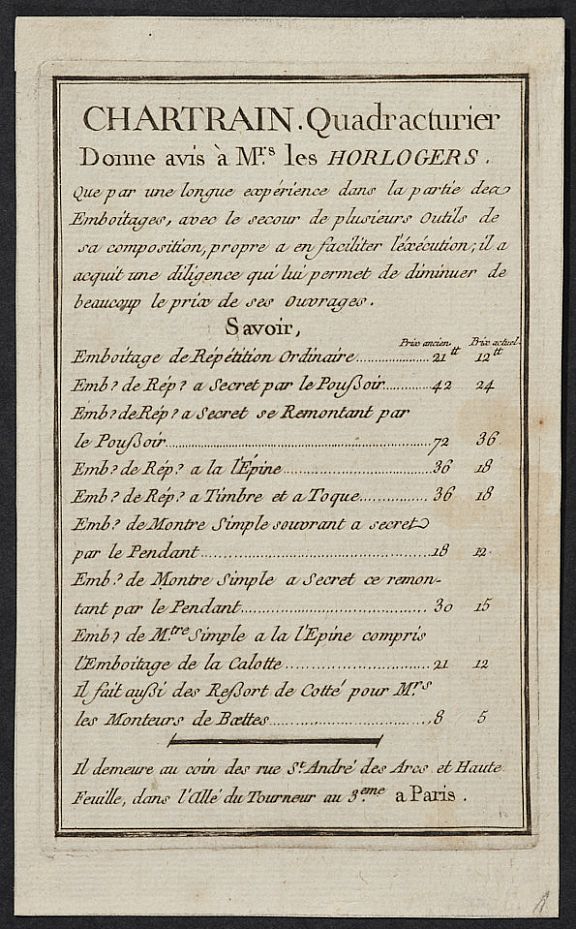 CHARTRAIN. Quadracturier
Donne avis à M.rs les HORLOGERS.
Que par une longue expérience dans la partie des
Emboitages, avec le secour de plusieurs Outils de
sa composition, propre a en faciliter l'éxécution; il a
acquit une diligence qui lui permet de diminuer de
beaucoup le prix de ses Ouvrages.
Savoir,
Prix ancien. Prix actuel.
Emboitage de Répétition Ordinaire....................21tt 12tt
Emb? de Rép? a Secret par le Poußoir.............42 24
Emb? de Rép? a Secret se Remontant par
le Poußoir......................................................72 36
Emb? de Rép? a la l'Épine...............................36 18
Emb? de Rép? a Timbre et a Toque...............36 18
Emb? de Montre Simple souvrant a secret
par le Pendant...............................................18 12.
Emb? de Montre Simple a Secret ce remon-
tant par le Pendant.......................................30 15
Emb? de M.tre Simple a la l'Epine compris
l'Emboitage de la Calotte.............................21 12
Il fait außi des Reßort de Cotté pour M.rs
les Monteurs de Bœttes................................8 5
Il demeure au coin des rue S.t André des Arcs et Haute
Feuille, dans l'Allé du Tourneur au 3.eme a Paris.